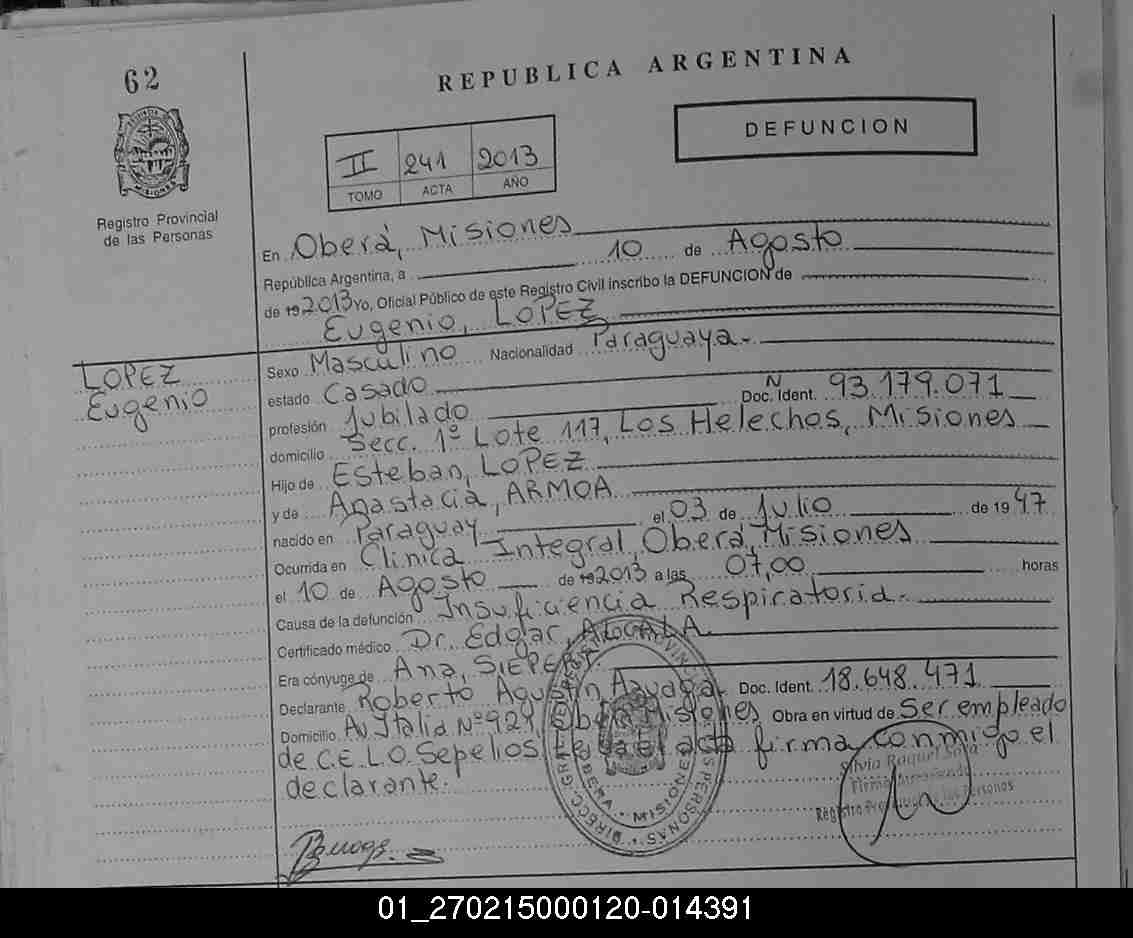 62
REPUBLICA ARGENTINA
DEFUNCION
II 241 2013
TOMO ACTA AÑO
Registro Provincial
de las Personas
En Oberá, Misiones
República Argentina, a 10 de Agosto
de 19 2013 Yo, Oficial Público de este Registro Civil inscribo la DEFUNCION de
Eugenio, LOPEZ
LOPEZ
Eugenio
Sexo Masculino Nacionalidad Paraguaya.-
estado Casado
profesión Jubilado Doc. Ident. N 93.179.071
domicilio Secc. 1º Lote 117, Los Helechos, Misiones
Hijo de Esteban, LOPEZ
y de Anastacia, ARMOA
nacido en Paraguay el 03 de Julio de 1947
Ocurrida en Clínica Integral, Oberá, Misiones
el 10 de Agosto de 19 2013 a las 07,00 horas
Causa de la defunción Insuficiencia Respiratoria.-
Certificado médico Dr. Edgar, ALCALA
Era cónyuge de Ana, SIEPER
Declarante Roberto Agustín Doc. Ident. 18.648.471
Domicilio Av Italia Nº 929, Oberá Misiones Obra en virtud de Ser empleado
de C.E.L.O. Sepelios, acta firma conmigo el
declarante.
Silvia Raquel
Firma Autorizada
Registro Provincial de las Personas
MISIONES
01_270215000120-014391